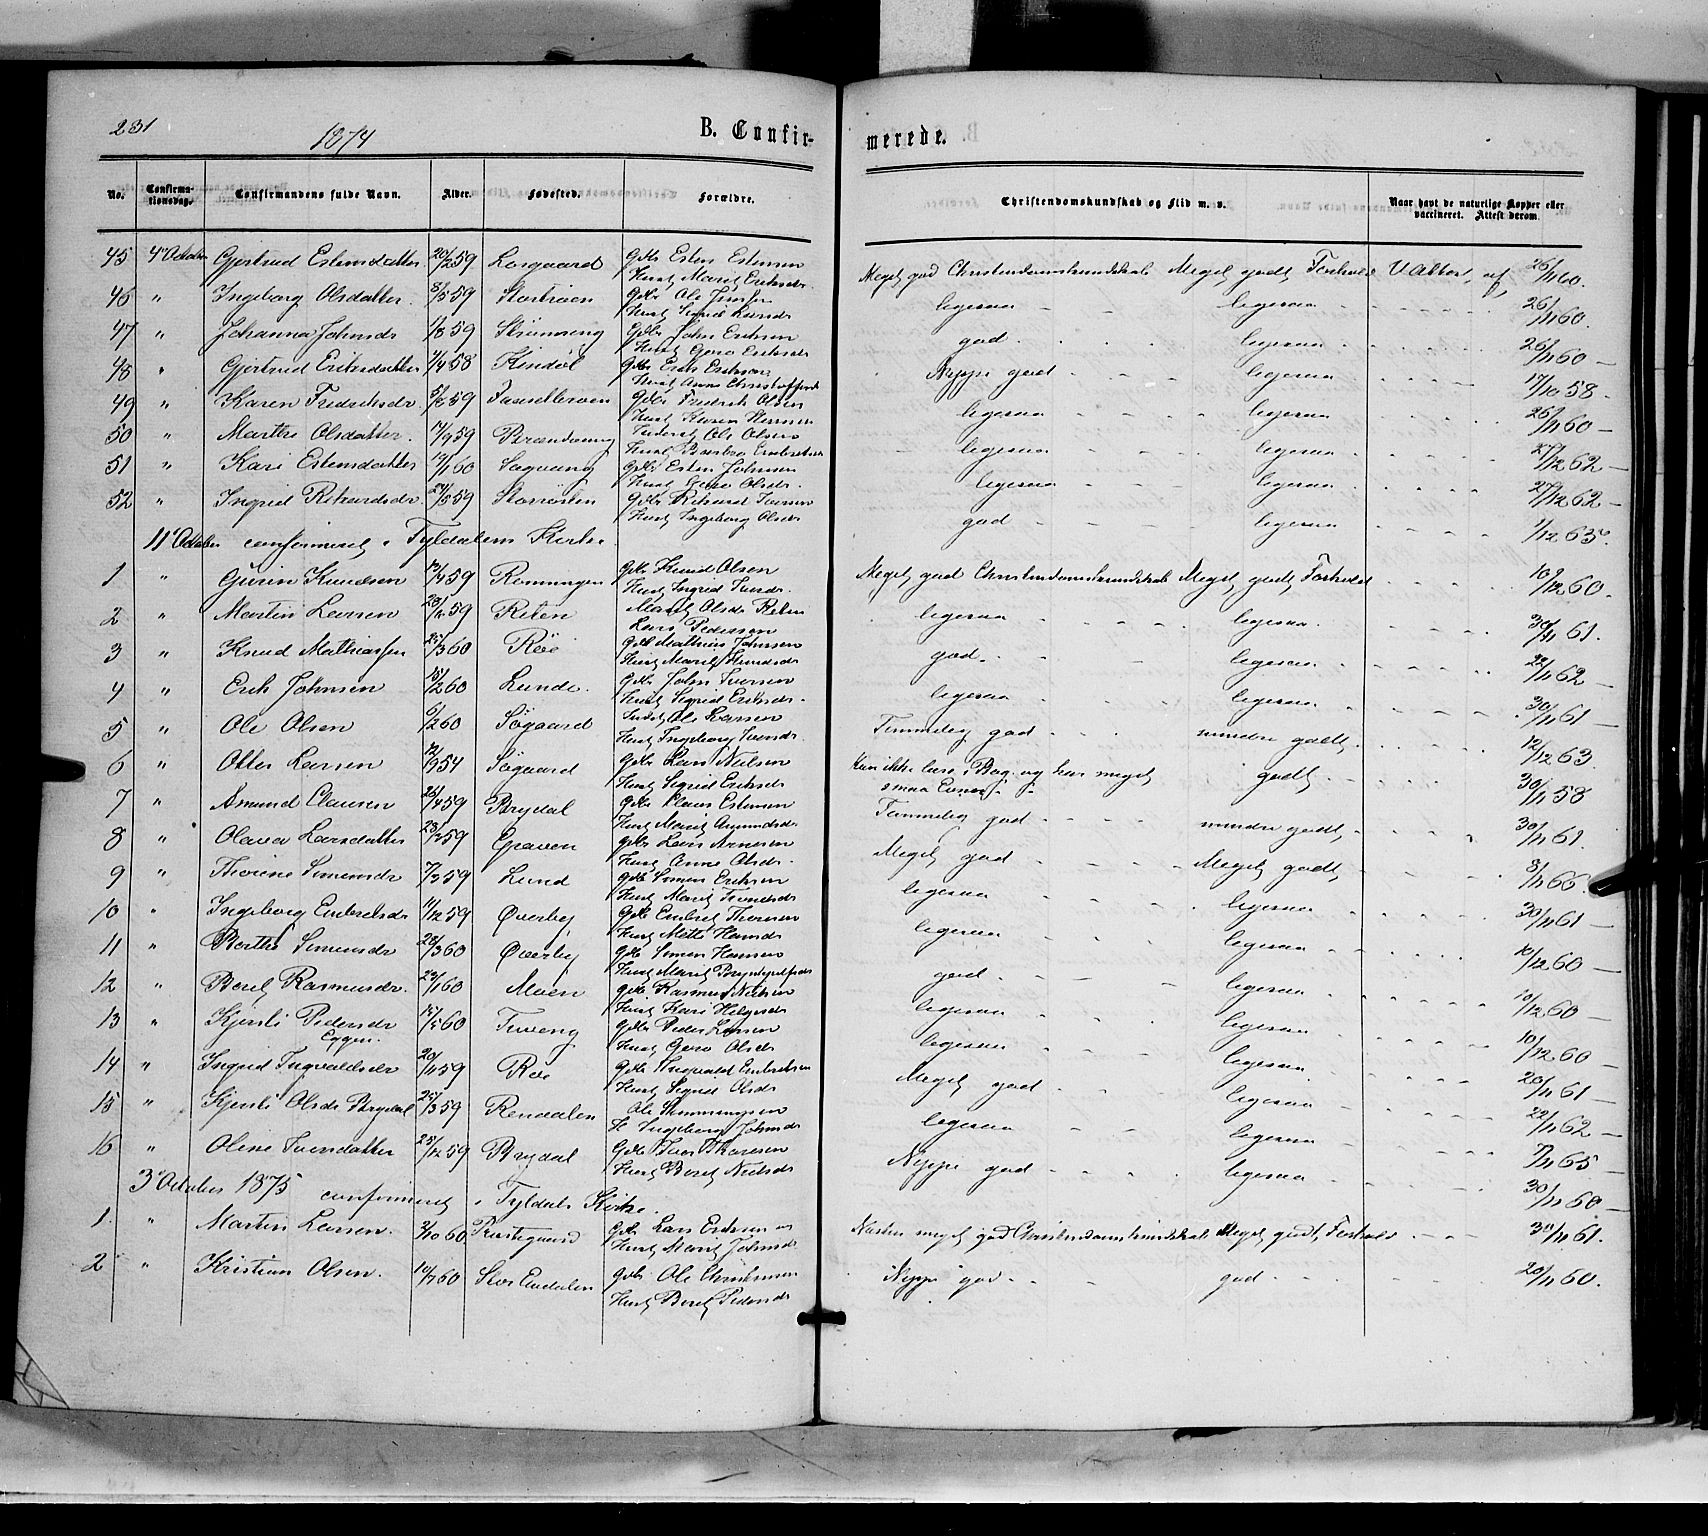 231
1874
B. Confir-
merede.
No. Confirma-tionsdag. Confirmandens fulde Navn. Alder. Fødested. Forældre. Christendomskundskab og Flid m. v. Naar havt de naturlige Kopper eller vaccineret. Attest derom.
45 4 October Gjertrud Estensdatter 20/2 59 Losgaard Gdbr Esten Estensen
Hust Marit Eriksdr
Meget god Christendomskundskab Meget godt Forhold V. Attest af 26/11 60.
46 " Ingeborg Olsdatter. 8/5 59 Stortrøen Gdbr Ole Jonsen
Hust Sigrid
ligesaa ligesaa 26/11 60.
47 " Johanna Johnsdr 1/8 59 Gdbr John Eriksen
Hust Goro Eriksdr
god ligesaa 26/11 60
48 " Gjertrud Eriksdatter 7/4 58 Kindøl Gdbr Erik Eriksen
Hust Anne
Neppe god ligesaa 17/10 58.
49 " Karen Fredriksdr. 5/8 59 Gdbr Fredrik Olsen
Hust Karen
ligesaa ligesaa 26/11 60
50 " Marthe Olsdatter. 14/9 59 Brændvang Inderst Ole Olsen
Hust Barbro
ligesaa ligesaa 27/12 62
51 " Kari Estensdatter 19/1 60 Sagvang Gdbr Esten Johnsen
Hust Goro Olsdr.
ligesaa ligesaa 27/12 62
52 " Ingrid Rikardsdr 24/5 59 Storøsten Gdbr Rikard Iversen
Hust Ingeborg Olsdr
god ligesaa 1/12 63.
11 October confirmeret i Tyldalens Kirke
1 " Gurin Knudsen 12/4 59 Ronningen Gdbr Knud Olsen
Hust Ingrid
Meget god Christendomskundskab Meget godt Forhold 10/12 60.
2 " Martin Larsen 23/12 59 Riten Marit Olsdr Riten
Lars Pedersen
ligesaa ligesaa 30/11 61.
3 " Knud Mathiasen 25/3 60 Røe Gdbr Mathias Johnsen
Hust Marit Knudsdr
god. ligesaa 22/11 62
4 " Erik Johnsen 15/2 60 Lunde. Gdbr John Iversen
Hust Sigrid Eriksdr.
ligesaa ligesaa 30/11 61
5 " Ole Olsen 6/2 60 Søgaard Inderst Ole Larsen
Hust Ingeborg
Temmelig god mindre godt. 12/12 63
6 " Otter Larsen 12/9 54 Søgaard Gdbr Lars Nielsen
Hust Sigrid Eriksdr
Kan ikke læse i Bog og har meget smaa Evner godt. 30/11 58
7 " Amund Clausen 26/4 59 Brydal Gdbr Claus Estensen
Hust Marit Amundsdr
Temmelig god mindre godt, 30/11 61.
8 " Olava Larsdatter 23/7 59 Graven Gdbr Lars Arnesen
Hust Anne Olsdr.
Meget god Meget godt, 3/11 66.
9 " Thorine Simensdr 7/3 59 Lund Gdbr Simen Eriksen
Hust Marit
ligesaa ligesaa 30/11 61
10 " Ingeborg Embretsdr 11/12 59 Øverby Gdbr Embret Thoresen
Hust Mette Hansdr
ligesaa ligesaa 12/12 60
11 " Berthe Simensdr 28/3 60 Øverby Gdbr Simen Hansen
Hust Marit
god ligesaa 10/12 60
12 " Berit Rasmusdr. 22/1 60 Moen Gdbr Rasmus Nielsen
Hust Kari Helgesdr
ligesaa ligesaa 10/12 60
13 " Kjersti Pedersdr 15/5 60 Tuveng Gdbr Peder Larsen
Eggen. Hust Goro Olsdr
ligesaa ligesaa 20/11 61
14 " Ingrid Ingvaldsdr 20/11 59 Røe Gdbr Ingvald Embretsen
Hust Sigrid Olsdr
Meget god ligesaa 22/11 62
15 " Kjersti Olsdr Brydal 25/3 59 Rendalen Ole
H. Ingeborg Johnsdr
ligesaa ligesaa 7/11 65
16 " Oline Iversdatter 25/12 59 Brydal Gdbr Iver
Hust Berit Nielsdr
Neppe god ligesaa 30/11 60
3 October 1875 confirmeret i Tyldals Kirke.
1. " Martin Larsen. 2/10 60 Prestegaard Gdbr Lars Eriksen og
Hust Marit Johnsdr
Næsten meget god Christendomskundskab Meget godt Forhold 30/11 61.
2 " Kristian Olsen. 10/7 60 Stor Elvdalen Gdbr Ole Christensen
Hust Berit Pedersdr
Neppe god god 20/11 60.